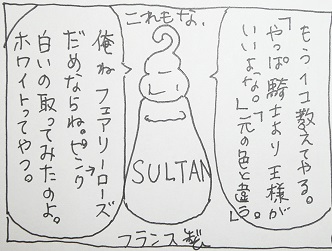 これもな.
もう1コ教えてやる。
「やっぱ騎士より王様が
いいよな。」
「元の色と違う」。
SULTAN
俺ねフェアリーローズ
だめならね。ピンク→
白いの取ってみたのよ。
ホワイトってやつ。
フランス製